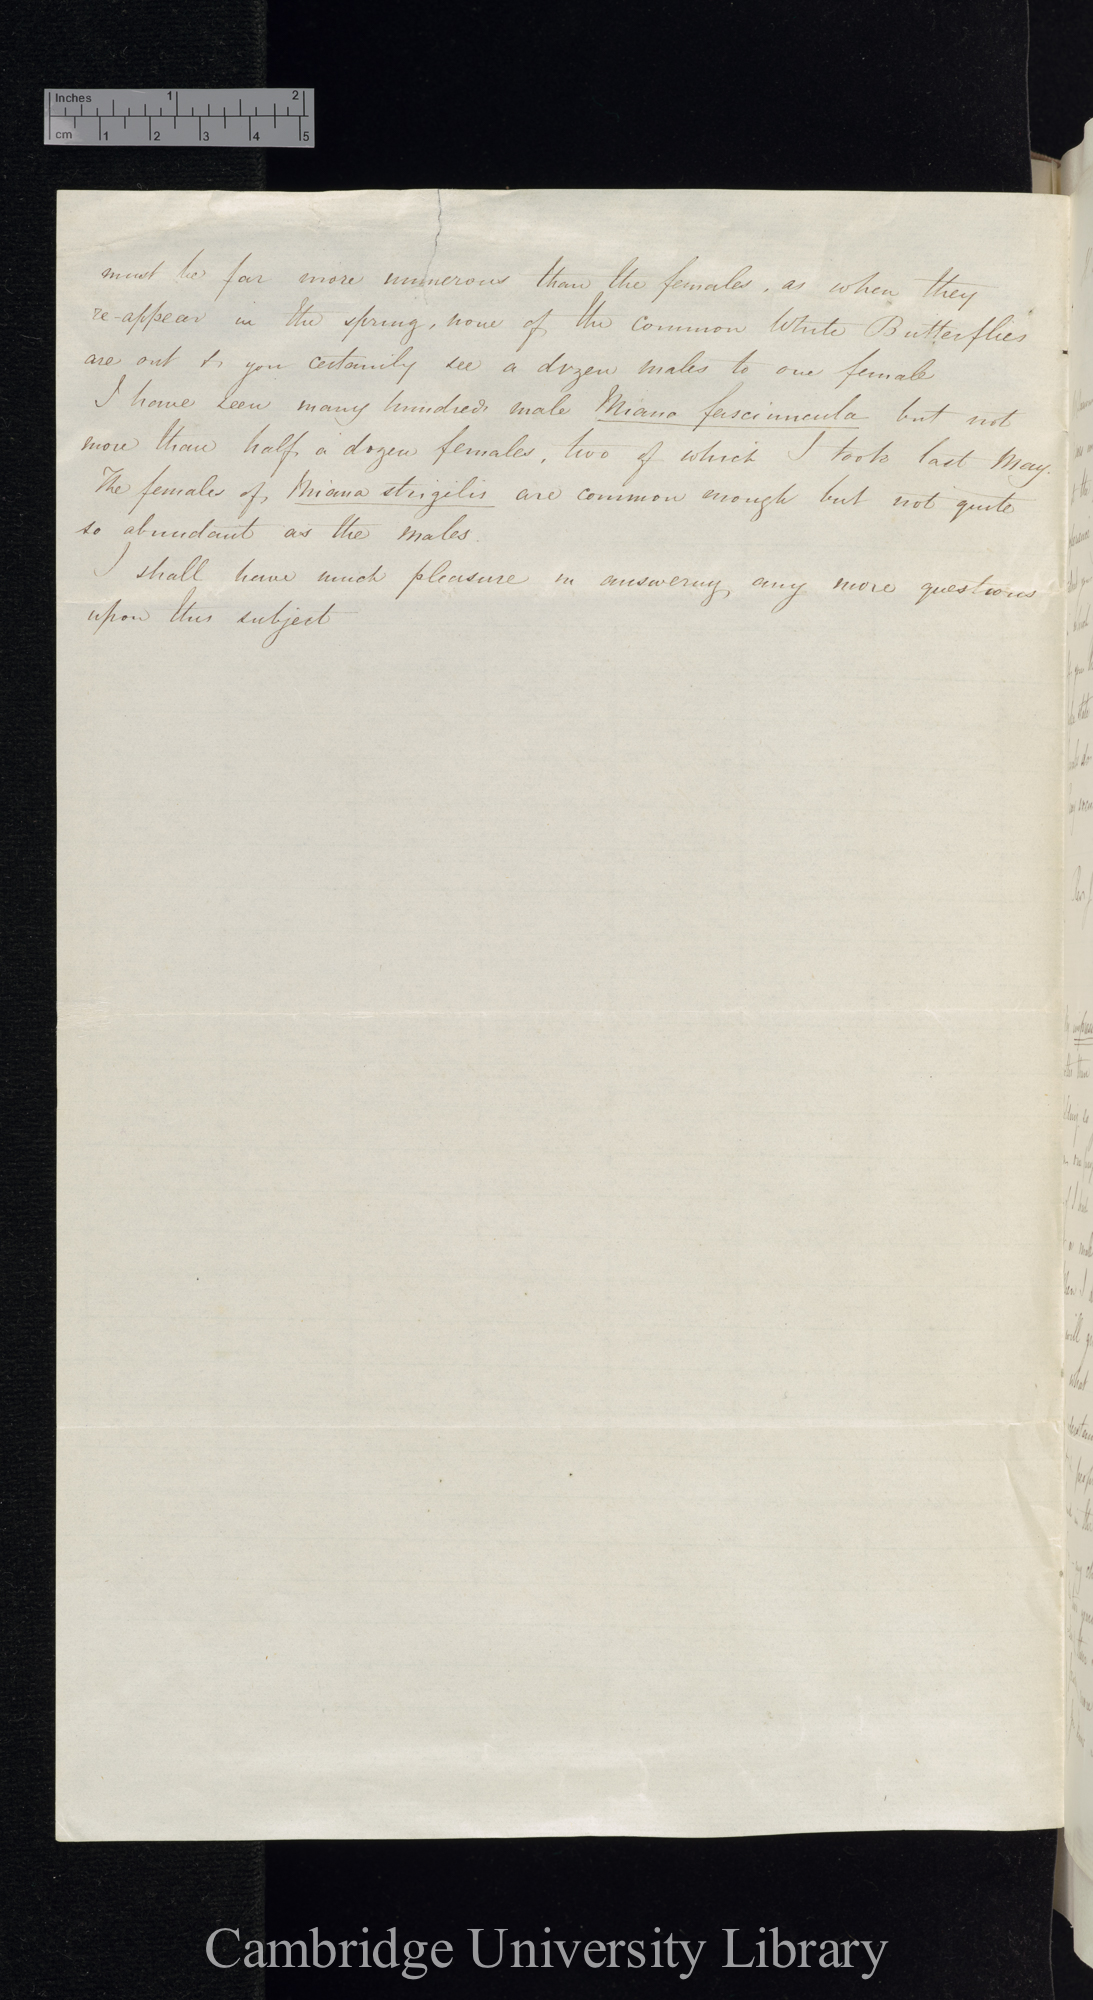 Inches 1 2
cm 1 2 3 4 5
must be far more numerous than the females, as when they
re-appear in the spring, none of the common White Butterflies
are out & you certainly see a dozen males to one female
I have seen many hundreds male Miana fasciuncula but not
more than half a dozen females, two of which I took last May.
The females of Miana strigilis are common enough but not quite
so abundant as the males.
I shall have much pleasure in answering any more questions
upon this subject
Cambridge University Library